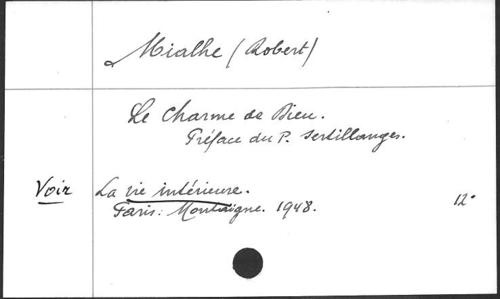 Mialhe (Robert)
Le Charme de Dieu.
Préface du P. Sertillanges.
Voir La vie intérieure.
Paris: Montaigne. 1948. 12°